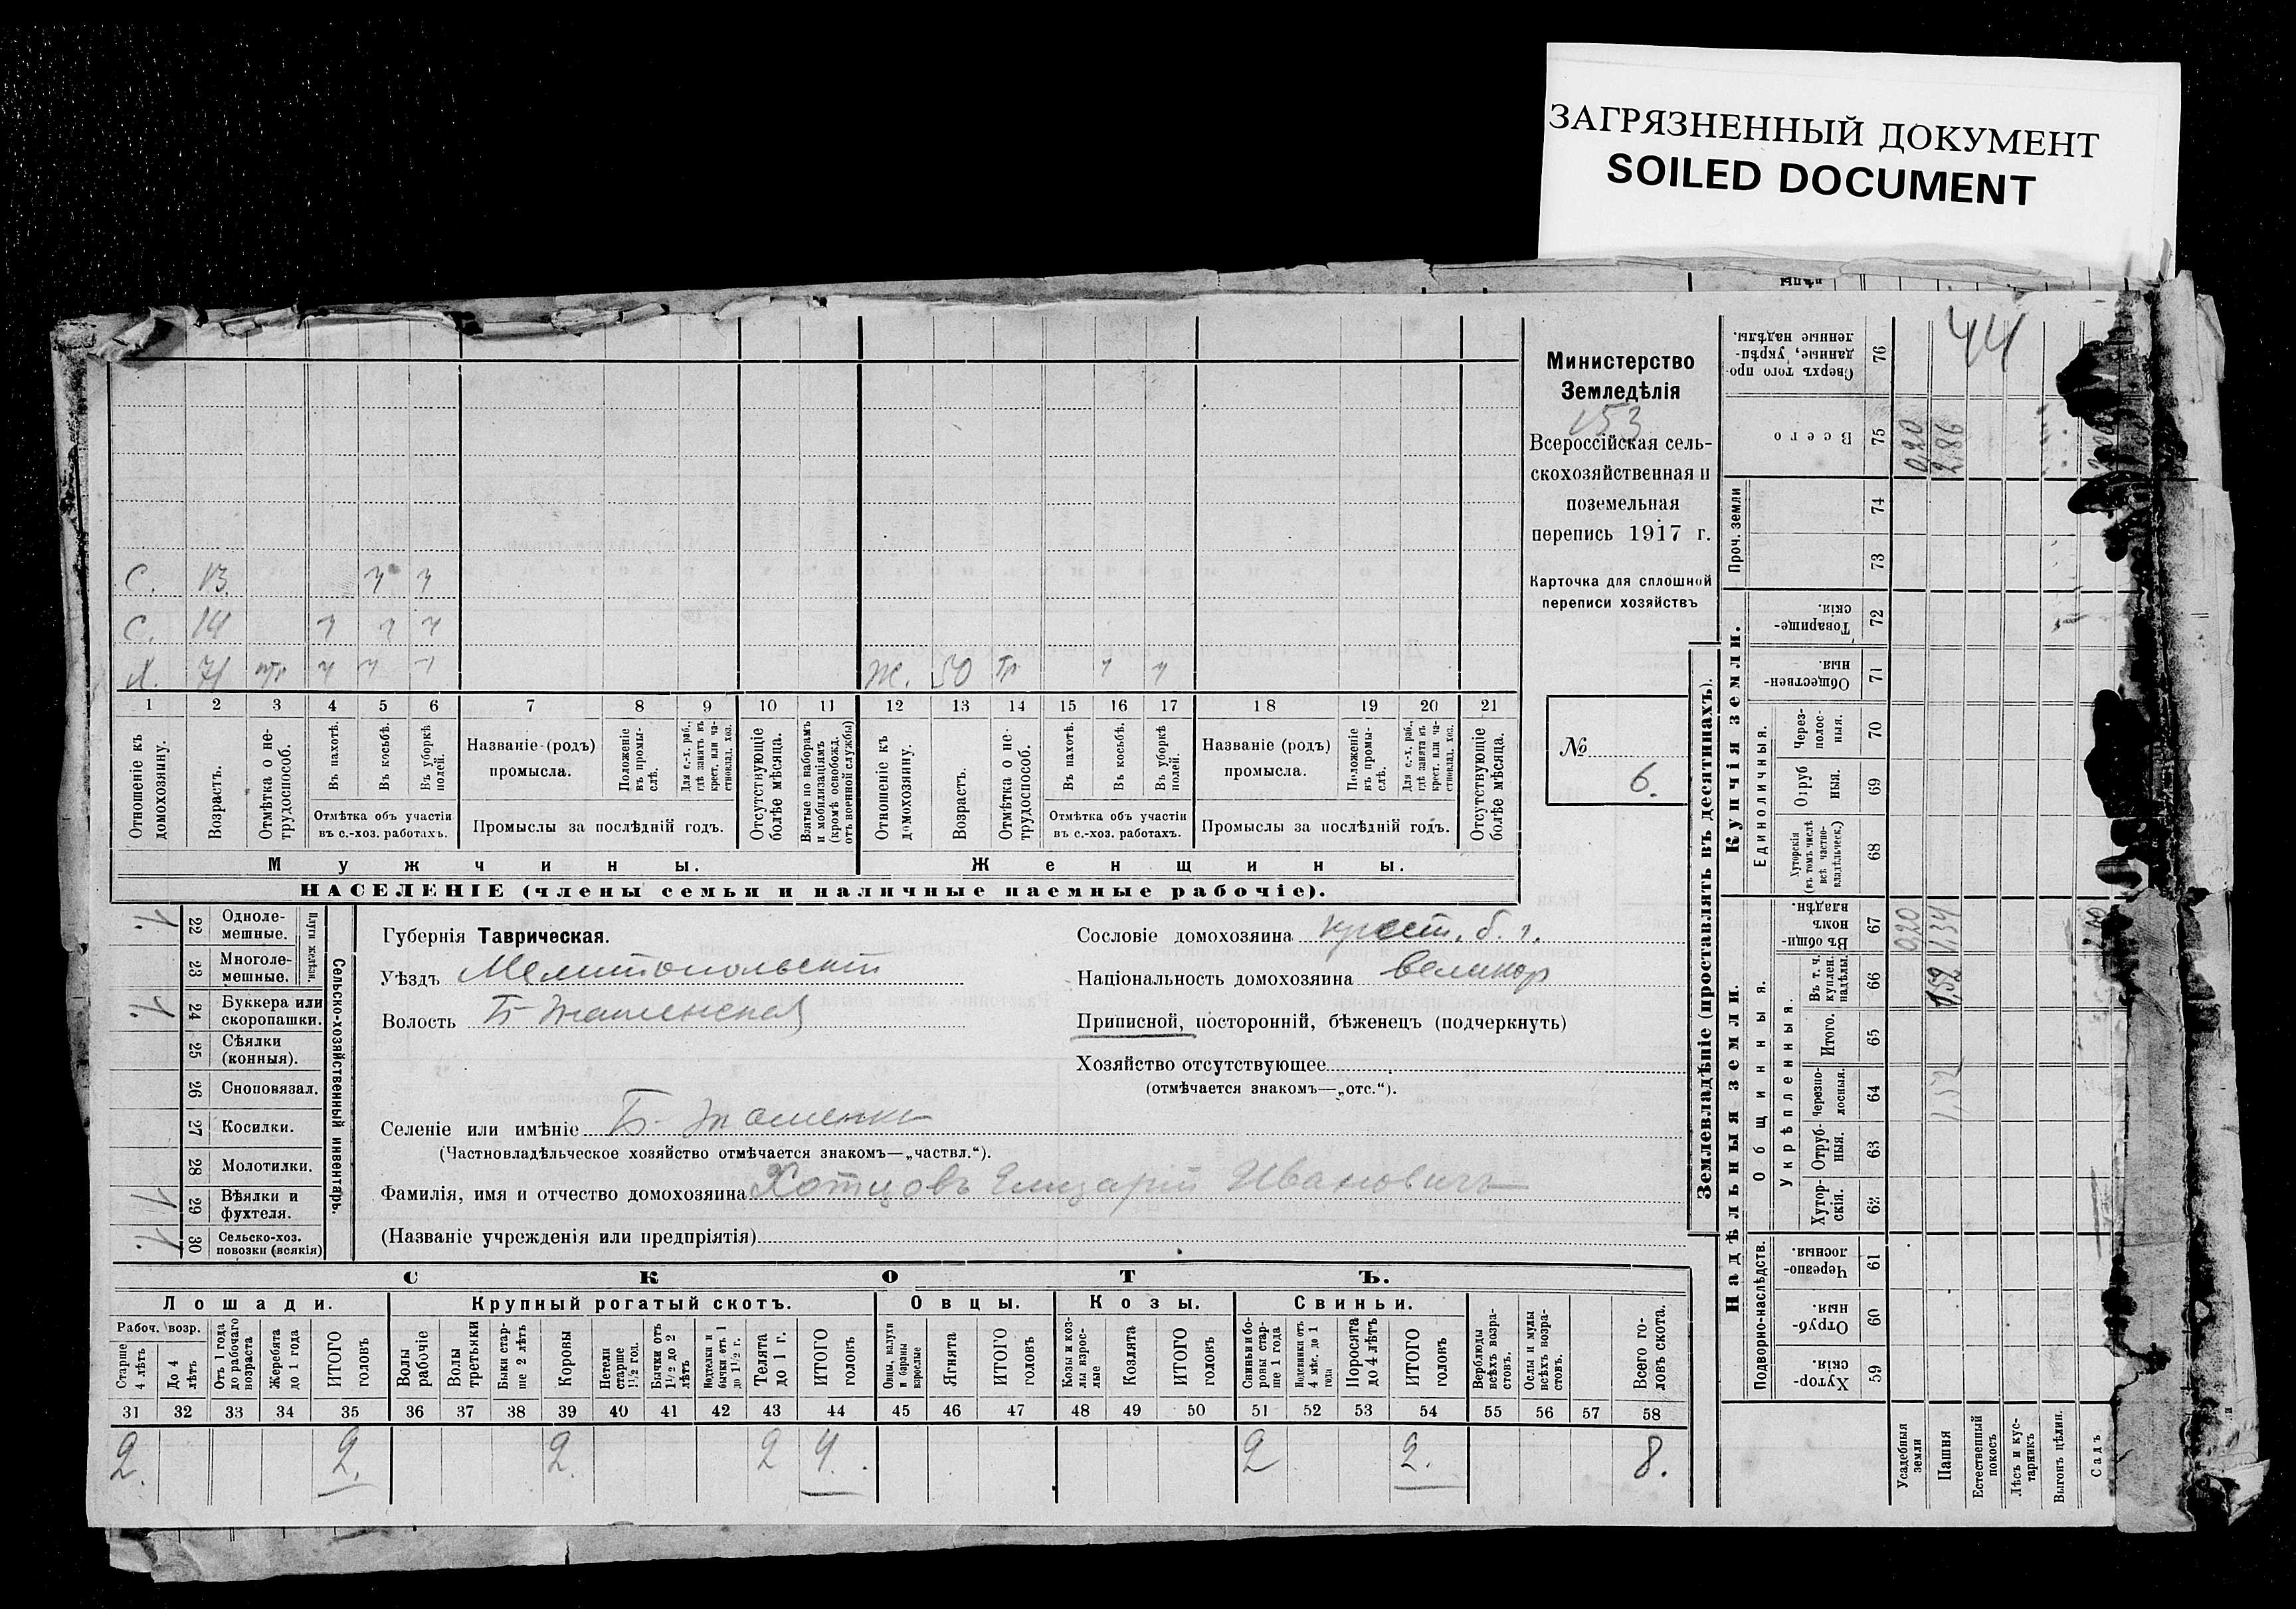 ЗАГРЯЗНЕННЫЙ ДОКУМЕНТ
SOILED DOCUMENT
44
Министерство
Земледѣлія
153
Всероссійская сель-
скохозяйственная и
поземельная
перепись 1917 г.
Карточка для сплошной
переписи хозяйствъ
№
6.
С. 13 ч ч
С. 14 ч ч ч
Х. 71 ч ч ч Ж. 50 ч ч
1 2 3 4 5 6 7 8 9 10 11 12 13 14 15 16 17 18 19 20 21
Отношеніе къ домохозяину.
Возрастъ.
Отмѣтка о не-трудоспособ.
Въ пахотѣ.
Въ косьбѣ.
Въ уборкѣ полей.
Отмѣтка объ участіи
въ с.-хоз. работахъ.
Названіе (родъ)
промысла.
Положеніе въ промы-слѣ.
Для с.-х. раб., гдѣ занятъ въ крест. или ча-стновлад. хоз.
Промыслы за послѣдній годъ.
Отсутствующіе болѣе мѣсяца.
Взятые по наборамъ и мобилизаціямъ (кромѣ освобожд. отъ военной службы)
Отношеніе къ домохозяину.
Возрастъ.
Отмѣтка о не-трудоспособ.
Въ пахотѣ.
Въ косьбѣ.
Въ уборкѣ полей.
Отмѣтка объ участіи
въ с.-хоз. работахъ.
Названіе (родъ)
промысла.
Положеніе въ промы-слѣ.
Для с.-х. раб., гдѣ занята въ крест. или ча-стновлад. хоз.
Промыслы за послѣдній годъ.
Отсутствующіе болѣе мѣсяца.
Мужчины.
Женщины.
НАСЕЛЕНІЕ (члены семьи и наличные наемные рабочіе).
Сельско-хозяйственный инвентарь.
Плуги желѣзн.
1. 22 Одноле-мешные.
23 Многоле-мешные.
1. 24 Буккера или скоропашки.
25 Сѣялки (конныя).
26 Сноповязал.
27 Косилки.
28 Молотилки.
1 29 Вѣялки и фухтеля.
1. 30 Сельско-хоз. повозки (всякія)
Губернія Таврическая.
Уѣздъ Мелитопольскій
Волость Б-
Сословіе домохозяина крест. б. г.
Національность домохозяина великор
Приписной, посторонній, бѣженецъ (подчеркнуть)
Хозяйство отсутствующее
(отмѣчается знакомъ—„отс.“).
Селеніе или имѣніе Б-
(Частновладѣльческое хозяйство отмѣчается знакомъ—„частвл.“).
Фамилія, имя и отчество домохозяина Хотцовъ Елизарій Ивановичъ
(Названіе учрежденія или предпріятія)
СКОТЪ.
Лошади. Крупный рогатый скотъ. Овцы. Козы. Свиньи.
Рабоч. возр.
Старше 4 лѣтъ
До 4 лѣтъ
Отъ 1 года до рабочаго возраста
Жеребята до 1 года
ИТОГО головъ
Волы рабочіе
Волы третьяки
Быки стар-ше 2 лѣтъ
Коровы
Нетели старше 1 1/2 год.
Бычки отъ 1 1/2 до 2 лѣтъ
Нетелки и бычки отъ 1 до 1 1/2 г.
Телята до 1 г.
ИТОГО головъ
Овцы, валухи и бараны взрослые
Ягнята
ИТОГО головъ
Козы и коз-лы взрос-лые
Козлята
ИТОГО головъ
Свиньи и бо-ровы стар-ше 1 года
Подсвинки отъ 4 мѣс. до 1 года
Поросята до 4 лѣтъ
ИТОГО головъ
Верблюды всѣхъ возра-стовъ.
Ослы и мулы всѣхъ возра-стовъ.
Всего го-ловъ скота.
31 32 33 34 35 36 37 38 39 40 41 42 43 44 45 46 47 48 49 50 51 52 53 54 55 56 57 58
2. 2. 2. 2 4. 2 2. 8.
Землевладѣніе (проставлять въ десятинахъ).
Надѣльныя земли.
Купчія земли.
Проч. земли
Подворно-наслѣдств.
Общинныя.
Укрѣпленныя.
Единоличныя.
Хутор-скія. 59
Отруб-ныя. 60
Черезпо-лосныя. 61
Хутор-скія. 62
Отруб-ныя. 63
Черезпо-лосныя. 64
Итого. 65
Въ т. ч. куплен. надѣлы. 66
Въ общи-номъ владѣн. 67
Хуторскія (въ томъ числѣ всѣ частно-владѣльческ.) 68
Отруб ныя. 69
Через-полос-ныя. 70
Обществен-ныя. 71
Товарище-скія. 72
73
74
Всего 75
Сверхъ того про-данные, укрѣп-ленные надѣлы. 76
Усадебныя земли 0,20 0,20
Пашня 1,52 1,52 1,34 2,86
Естественный покосъ
Лѣсъ и кус-тарникъ
Выгонъ цѣлин.
Садъ